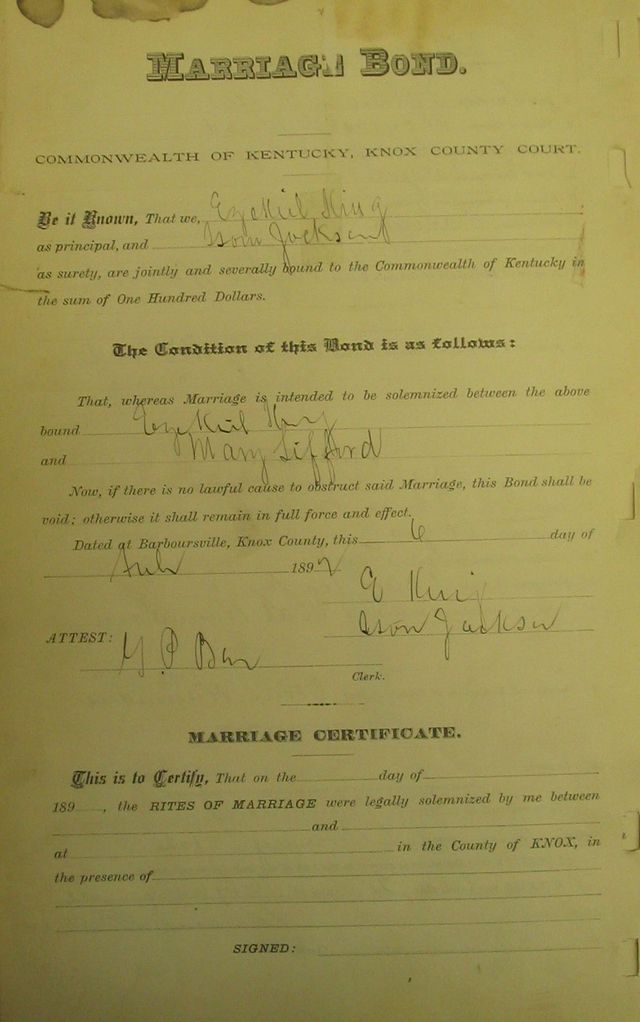 MARRIAGE BOND.
COMMONWEALTH OF KENTUCKY, KNOX COUNTY COURT.
Be it Known, That we, Ezekiel King
as principal, and Ison Jackson
as surety, are jointly and severally bound to the Commonwealth of Kentucky in
the sum of One Hundred Dollars.
The Condition of this Bond is as follows:
That, whereas Marriage is intended to be solemnized between the above
bound Ezekiel King
and Mary Lifford
Now, if there is no lawful cause to obstruct said Marriage, this Bond shall be
void; otherwise it shall remain in full force and effect.
Dated at Barboursville, Knox County, this 6 day of
189
E King
Ison Jackson
ATTEST:
Clerk.
MARRIAGE CERTIFICATE.
This is to Certify, That on the day of
189 , the RITES OF MARRIAGE were legally solemnized by me between
and
at in the County of KNOX, in
the presence of
SIGNED: